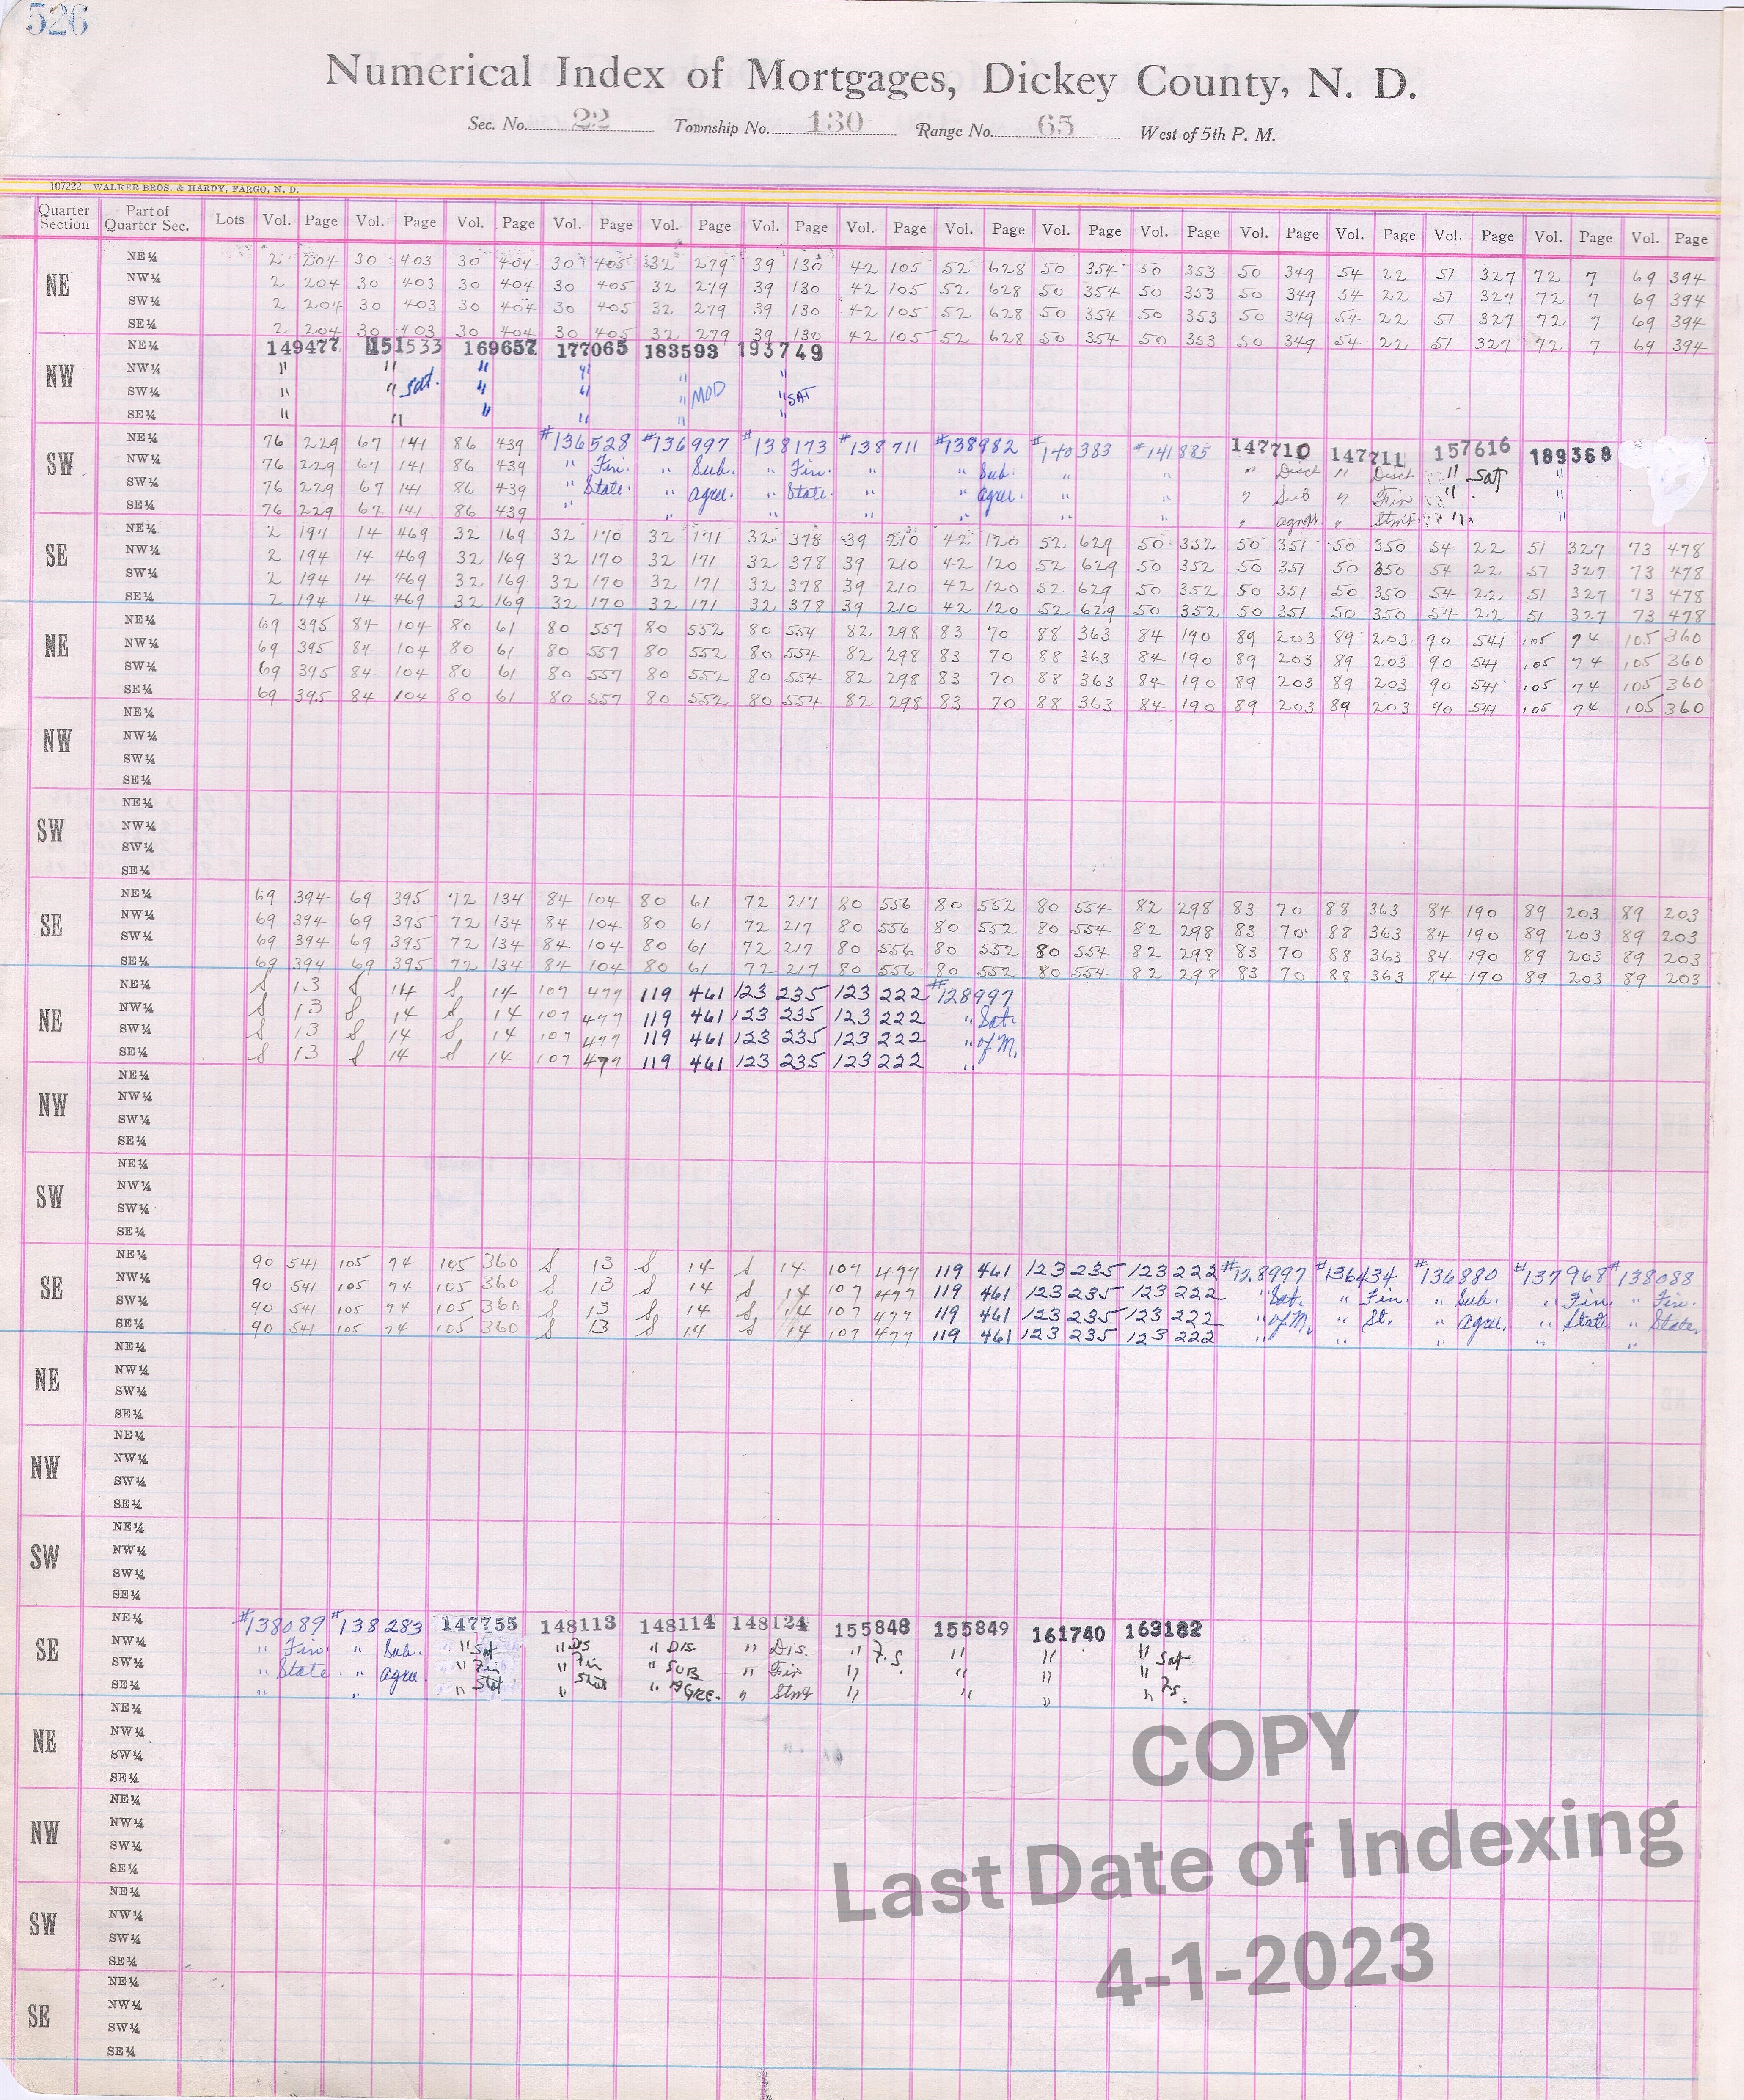 526
Numerical Index of Mortgages, Dickey County, N. D.
Sec. No. 22 Township No. 130 Range No. 65 West of 5th P. M.
107222 WALKER BROS. & HARDY, FARGO, N. D.
Quarter Section Part of Quarter Sec. Lots Vol. Page Vol. Page Vol. Page Vol. Page Vol. Page Vol. Page Vol. Page Vol. Page Vol. Page Vol. Page Vol. Page Vol. Page Vol. Page Vol. Page Vol. Page
NE NE¼ 2 204 30 403 30 404 30 405 32 279 39 130 42 105 52 628 50 354 50 353 50 349 54 22 51 327 72 7 69 394
NW¼ 2 204 30 403 30 404 30 405 32 279 39 130 42 105 52 628 50 354 50 353 50 349 54 22 51 327 72 7 69 394
SW¼ 2 204 30 403 30 404 30 405 32 279 39 130 42 105 52 628 50 354 50 353 50 349 54 22 51 327 72 7 69 394
SE¼ 2 204 30 403 30 404 30 405 32 279 39 130 42 105 52 628 50 354 50 353 50 349 54 22 51 327 72 7 69 394
NW NE¼ 149477 151533 169657 177065 183593 193749
NW¼ " " " " " "
SW¼ " " Sat. " " " MOD " SAT
SE¼ " " " " " "
SW NE¼ 76 229 67 141 86 439 #136528 #136997 #138173 #138711 #138982 #140383 #141885 147710 147711 157616 189368
NW¼ 76 229 67 141 86 439 " Fin. " Sub. " Fin. " " Sub. " " " Disch " Disch " Sat "
SW¼ 76 229 67 141 86 439 " State. " agree. " State. " " agree. " " " Sub " Fin " "
SE¼ 76 229 67 141 86 439 " " " " " " " " agmt " Stmt " "
SE NE¼ 2 194 14 469 32 169 32 170 32 171 32 378 39 210 42 120 52 629 50 352 50 351 50 350 54 22 51 327 73 478
NW¼ 2 194 14 469 32 169 32 170 32 171 32 378 39 210 42 120 52 629 50 352 50 351 50 350 54 22 51 327 73 478
SW¼ 2 194 14 469 32 169 32 170 32 171 32 378 39 210 42 120 52 629 50 352 50 351 50 350 54 22 51 327 73 478
SE¼ 2 194 14 469 32 169 32 170 32 171 32 378 39 210 42 120 52 629 50 352 50 351 50 350 54 22 51 327 73 478
NE NE¼ 69 395 84 104 80 61 80 557 80 552 80 554 82 298 83 70 88 363 84 190 89 203 89 203 90 541 105 74 105 360
NW¼ 69 395 84 104 80 61 80 557 80 552 80 554 82 298 83 70 88 363 84 190 89 203 89 203 90 541 105 74 105 360
SW¼ 69 395 84 104 80 61 80 557 80 552 80 554 82 298 83 70 88 363 84 190 89 203 89 203 90 541 105 74 105 360
SE¼ 69 395 84 104 80 61 80 557 80 552 80 554 82 298 83 70 88 363 84 190 89 203 89 203 90 541 105 74 105 360
NW NE¼
NW¼
SW¼
SE¼
SW NE¼
NW¼
SW¼
SE¼
SE NE¼ 69 394 69 395 72 134 84 104 80 61 72 217 80 556 80 552 80 554 82 298 83 70 88 363 84 190 89 203 89 203
NW¼ 69 394 69 395 72 134 84 104 80 61 72 217 80 556 80 552 80 554 82 298 83 70 88 363 84 190 89 203 89 203
SW¼ 69 394 69 395 72 134 84 104 80 61 72 217 80 556 80 552 80 554 82 298 83 70 88 363 84 190 89 203 89 203
SE¼ 69 394 69 395 72 134 84 104 80 61 72 217 80 556 80 552 80 554 82 298 83 70 88 363 84 190 89 203 89 203
NE NE¼ S 13 S 14 S 14 107 477 119 461 123 235 123 222 #128997
NW¼ S 13 S 14 S 14 107 477 119 461 123 235 123 222 " Sat.
SW¼ S 13 S 14 S 14 107 477 119 461 123 235 123 222 " of M.
SE¼ S 13 S 14 S 14 107 477 119 461 123 235 123 222 "
NW NE¼
NW¼
SW¼
SE¼
SW NE¼
NW¼
SW¼
SE¼
SE NE¼ 90 541 105 74 105 360 S 13 S 14 S 14 107 477 119 461 123 235 123 222 #128997 #136434 #136880 #137968 #138088
NW¼ 90 541 105 74 105 360 S 13 S 14 S 14 107 477 119 461 123 235 123 222 " Sat. " Fin. " Sub. " Fin. " Fin.
SW¼ 90 541 105 74 105 360 S 13 S 14 S 14 107 477 119 461 123 235 123 222 " of M. " St. " agree. " State " State.
SE¼ 90 541 105 74 105 360 S 13 S 14 S 14 107 477 119 461 123 235 123 222 " " " " "
NE NE¼
NW¼
SW¼
SE¼
NW NE¼
NW¼
SW¼
SE¼
SW NE¼
NW¼
SW¼
SE¼
SE NE¼ #138089 #138283 147755 148113 148114 148124 155848 155849 161740 163182
NW¼ " Fin. " Sub. " Sat " Dis " Dis. " Dis. " F.S. " " " Sat
SW¼ " State. " agree. " Fin " Fin " SUB " Fin " " " "
SE¼ " " " Stat " Stat " AGRE. " Stmt " " " " Fs.
NE NE¼
NW¼
SW¼
SE¼
NW NE¼
NW¼
SW¼
SE¼
SW NE¼
NW¼
SW¼
SE¼
SE NE¼
NW¼
SW¼
SE¼
COPY
Last Date of Indexing
4-1-2023